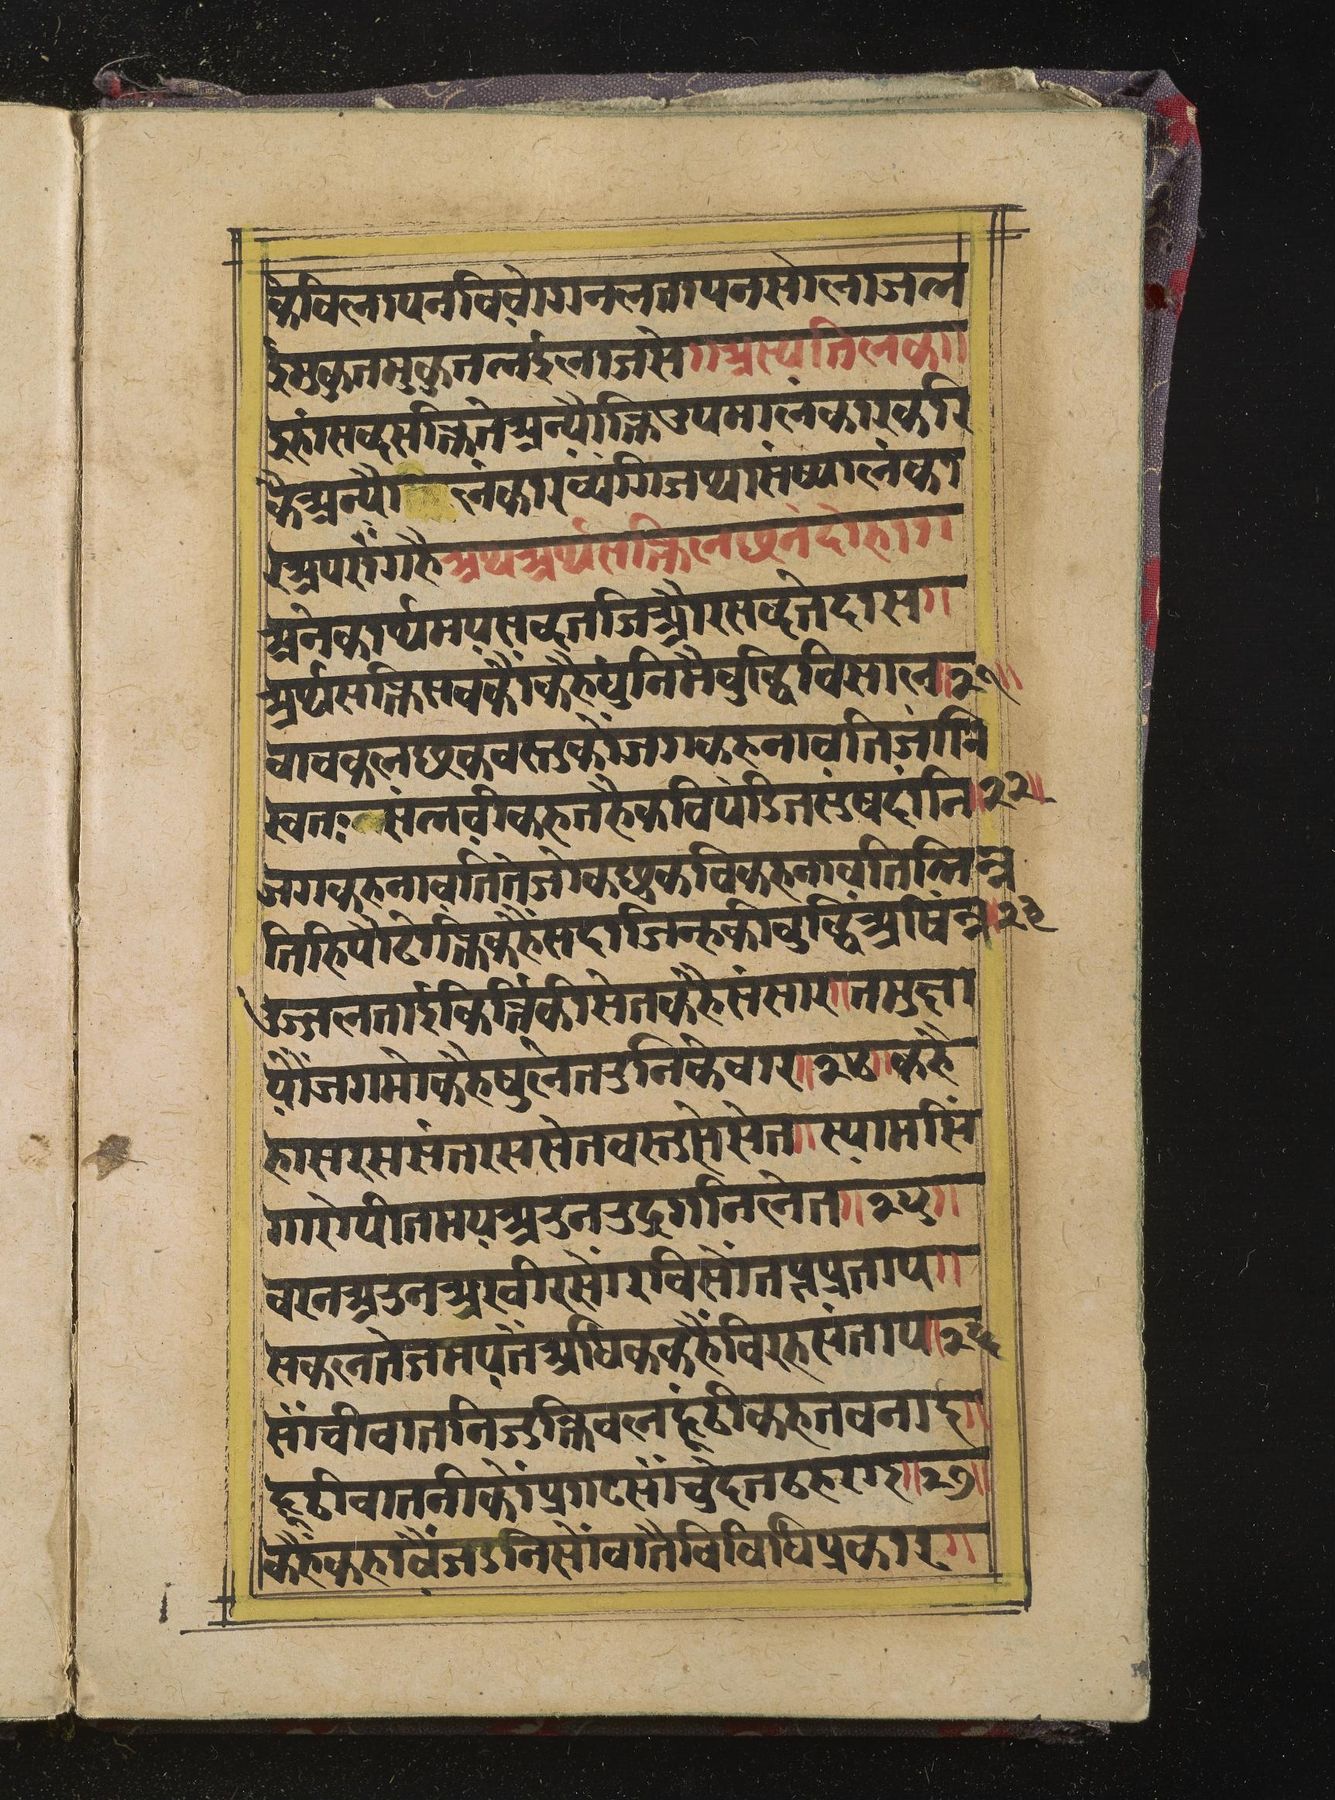 के विलापन वियोगनल तापन सो लाज ल
ई मुकुत मुकुतलई लाज से ॥ अस्य तिलक ॥
इहां सब्द सक्ति ते अन्योक्ति उपमालंकार करि
कै अन्यो लंकार व्यंगि जथासंष्यालंका
र अपरांग है अथ अर्थसक्ति लछन दोहा ॥
अनेकार्थमय सब्द तजि और सब्द जे दास ॥
अर्थसक्ति सबकौं कहै धुनि मै बुद्धि विसाल ॥२१॥
वाचक लछक वस्तु कौ जग कहनावति जांनि
स्वतः संलवी कहत है कवि पंडित सुषदांनि ॥२२॥
जग कहनावति ते जो कछु कवि कहनावति भिन्न
तिहि पौढोक्ति कहैं सदा जिन्ह की बुद्धि अषिंन्न ॥२३
उज्जलताई कित्ति की सेत कहै संसार ॥ तम छा
यौ जग मे कहै षुले तरुनि के बार ॥२४॥ कहै
हास रस सांत रस सेत वस्तु से सेत ॥ स्याम सिं
गारो पीत मय अरुन रुद्र गनि लेत ॥२५॥
बरन अरुन अरु बीर सों रवि सों तप्त प्रताप ॥
सकल तेजमय तें अधिक कहैं विरह संताप ॥२६
सांची बातनि जुक्ति बल झूठी कहत बनाइ ॥
झूठी बातनी कों प्रगट सांचु देत ठहराइ ॥२७॥
कहैं कहावैं जडनि सों बातै विविधि प्रकार ॥